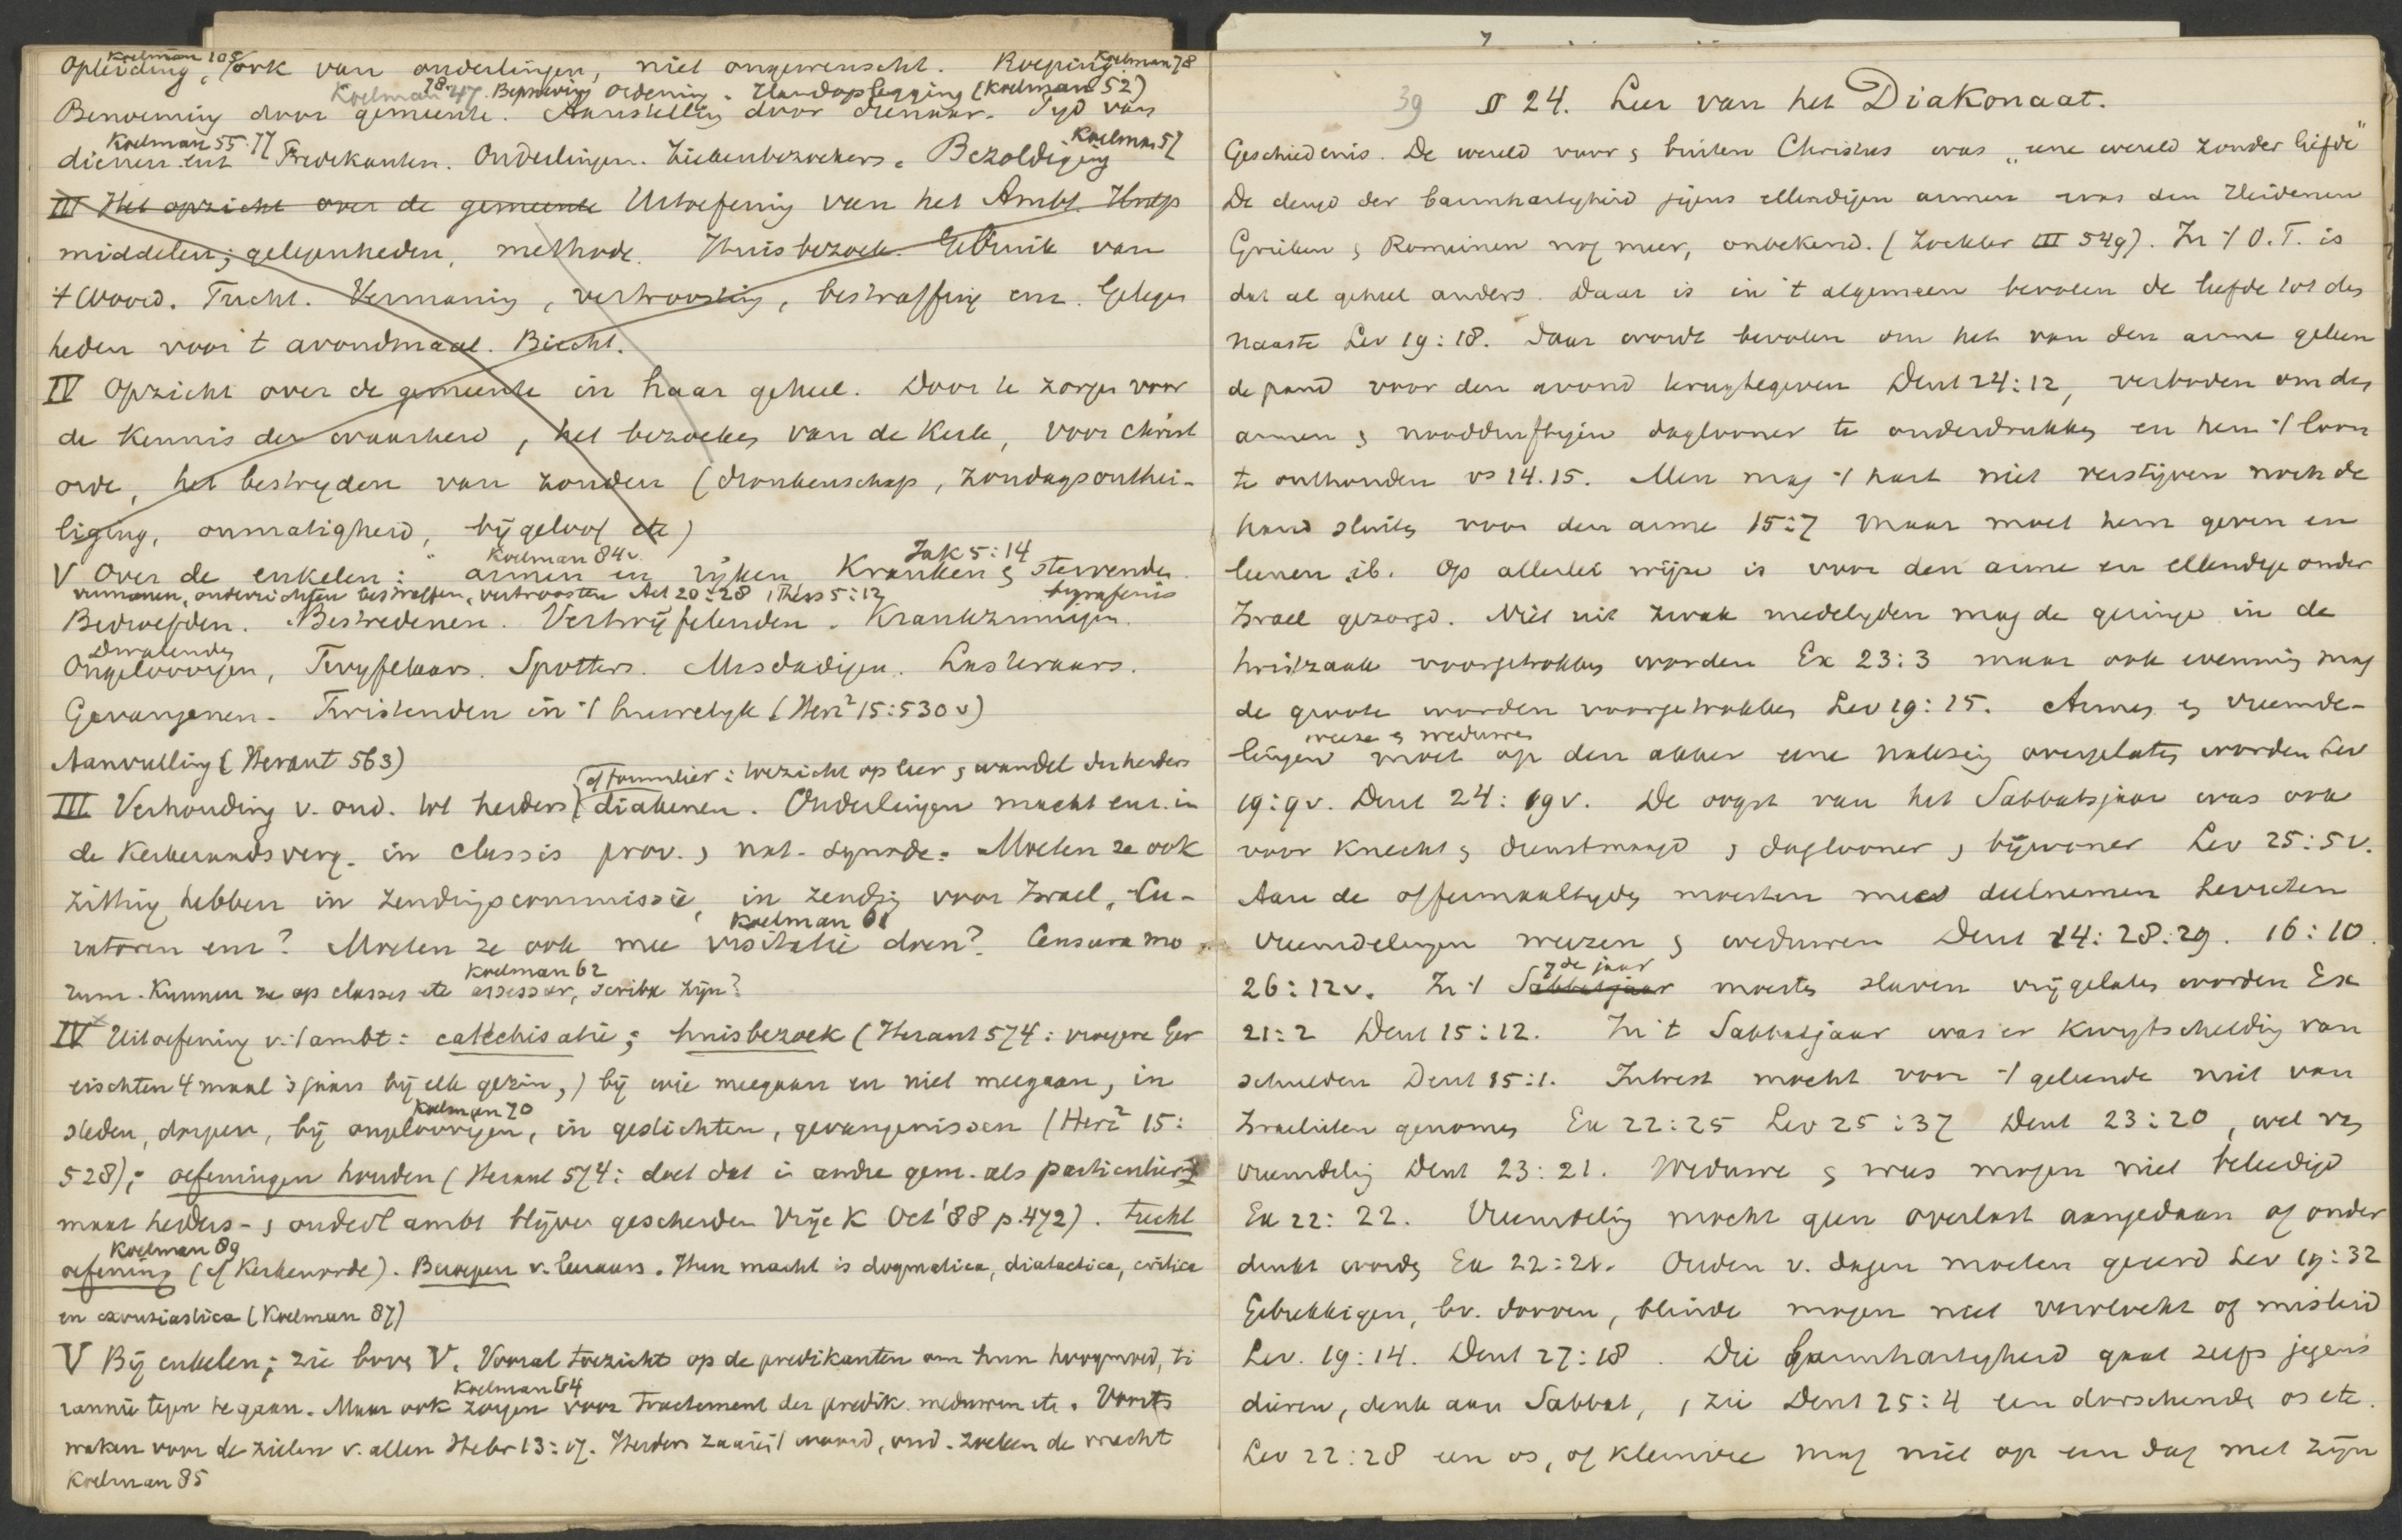 Koelman 105 Koelman 78
Opleiding, ook van ouderlingen, niet ongewenscht. Roeping.
Koelman 47. 78. Beproeving Ordening. Handoplegging (Koelman 52)
Benoeming door gemeente. Aanstelling door dienaar. Tijd van
Koelman 55.77 Koelman 57
dienen enz Predikanten. Ouderlingen. Ziekenbezoekers. Bezoldiging
III Het opzicht over de gemeente Uitoefening van het Ambt. Hulp
middelen; gelegenheden, methode. Huisbezoek. Gebruik van
't Woord. Tucht. Vermaning, vertroosting, bestraffing enz. Gelegen
heden voor 't avondmaal. Biecht.
IV Opzicht over de gemeente in haar geheel. Door te zorgen voor
de kennis der waarheid, het bezoeken van de Kerk, voor Christ
orde, het bestryden van zonden (dronkenschap, zondagsonthei-
liging, onmatigheid, bijgeloof etc)
Koelman 84v. Jak 5:14
V Over de enkelen: armen en rijken, Kranken & stervenden
vermanen, onderrichten bestraffen, vertroosten Act 20:28 1 Thess 5:12 begrafenis
Bedroefden. Bestredenen. Vertwijfelenden. Krankzinnigen.
Dwalenden
Ongeloovigen, Twyfelaars. Spotters. Misdadigen. Lasteraars.
Gevangenen. Twistenden in 't huwelyk (Her² 15:530v)
Aanvulling (Heraut 563)
cf formulier: toezicht op leer & wandel der herders
III Verhouding v. oud. tot herders diakenen. Ouderlingen macht enz. in
de Kerkeraadsverg. in classis prov. & nat. synode. Moeten ze ook
zitting hebben in zendingscommissie, in zending voor Israel, Cu-
Koelman 61
ratoren enz? Moeten ze ook mee visitatie doen? Censura mo
Koelman 62
rum. Kunnen ze op classes etc assessor, scriba zijn?
IV Uitoefening v. 't ambt: catechisatie; huisbezoek (Heraut 574: vroegere Ger
eischten 4 maal 's jaars bij elk gezin,) bij wie meegaan en niet meegaan, in
Koelman 70
steden, dorpen, bij ongeloovigen, in gestichten, gevangenissen (Her² 15:
528); oefeningen houden (Heraut 574: doet dat in andre gem. als particulier
maar herders- & ouderl ambt blijven gescheiden Vrije K Oct '88 p.472). tucht
Koelman 89
oefening (cf Kerkenorde). Beroepen v. leeraars. Hun macht is dogmatica, diatactica, critica
en exousiastica (Koelman 87)
V Bij enkelen; zie boven V. Vooral toezicht op de predikanten om hun hoogmoed, ti
Koelman 64
rannie tegen te gaan. Maar ook zorgen voor Tractement der predik. weduwen etc. Voorts
waken voor de zielen v. allen Hebr 13:17. Herders zaaien 't woord, oud. zoeken de vrucht
Koelman 85
39 § 24. Leer van het Diakonaat.
Geschiedenis. De wereld voor & buiten Christus was „eene wereld zonder liefde"
De deugd der barmhartigheid jegens ellendigen armen was den Heidenen
Grieken & Romeinen nog meer, onbekend. (Zöckler III 549). In 't O.T. is
dat al geheel anders. Daar is in 't algemeen bevolen de liefde tot den
naaste Lev 19:18. Daar wordt bevolen om het van den arme geleen
de pand voor den avond terugtegeven Deut 24:12, verboden om den
armen & nooddruftigen daglooner te onderdrukken en hem 't loon
te onthouden vs 14.15. Men mag 't hart niet verstijven noch de
hand sluiten voor den arme 15:7 maar moet hem geven en
leenen ib. Op allerlei wijze is voor den arme en ellendige onder
Israel gezorgd. Niet uit zwak medelyden mag de geringe in de
twistzaak voorgetrokken worden Ex 23:3 maar ook evenmin mag
de groote worden voorgetrokken Lev 19:15. Armen & vreemde-
weeze & weduwen
lingen moet op den akker eene nalezing overgelaten worden Lev
19:9v. Deut 24:19v. De oogst van het Sabbatsjaar was ook
voor knecht & dienstmaagd & daglooner & bijwoner Lev 25:5v.
Aan de offermaaltyden moesten mee deelnemen Levieten
vreemdelingen weezen & weduwen Deut 14:28:29. 16:10.
7de jaar
26:12v. In 't Sabbatsjaar moesten slaven vrijgelaten worden Ex
21:2 Deut 15:12. In 't Sabbatsjaar was er kwytschelding van
schulden Deut 15:1. Intrest mocht voor 't geleende niet van
Israelieten genomen Ex 22:25 Lev 25:37 Deut 23:20, wel van
vreemdeling Deut 23:21. Weduwe & wees mogen niet beleedigd
Ex 22:22. Vreemdeling mocht geen overlast aangedaan of onder
drukt worden Ex 22:21. Ouden v. dagen moeten geeerd Lev 19:32
Gebrekkigen, bv. dooven, blinde mogen niet vervloekt of misleid
Lev. 19:14. Deut 27:18. Die barmhartigheid gaat zelfs jegens
dieren, denk aan Sabbat, & zie Deut 25:4 een dorschende os etc.
Lev 22:28 een os, of kleinvee mag niet op een dag met zijn